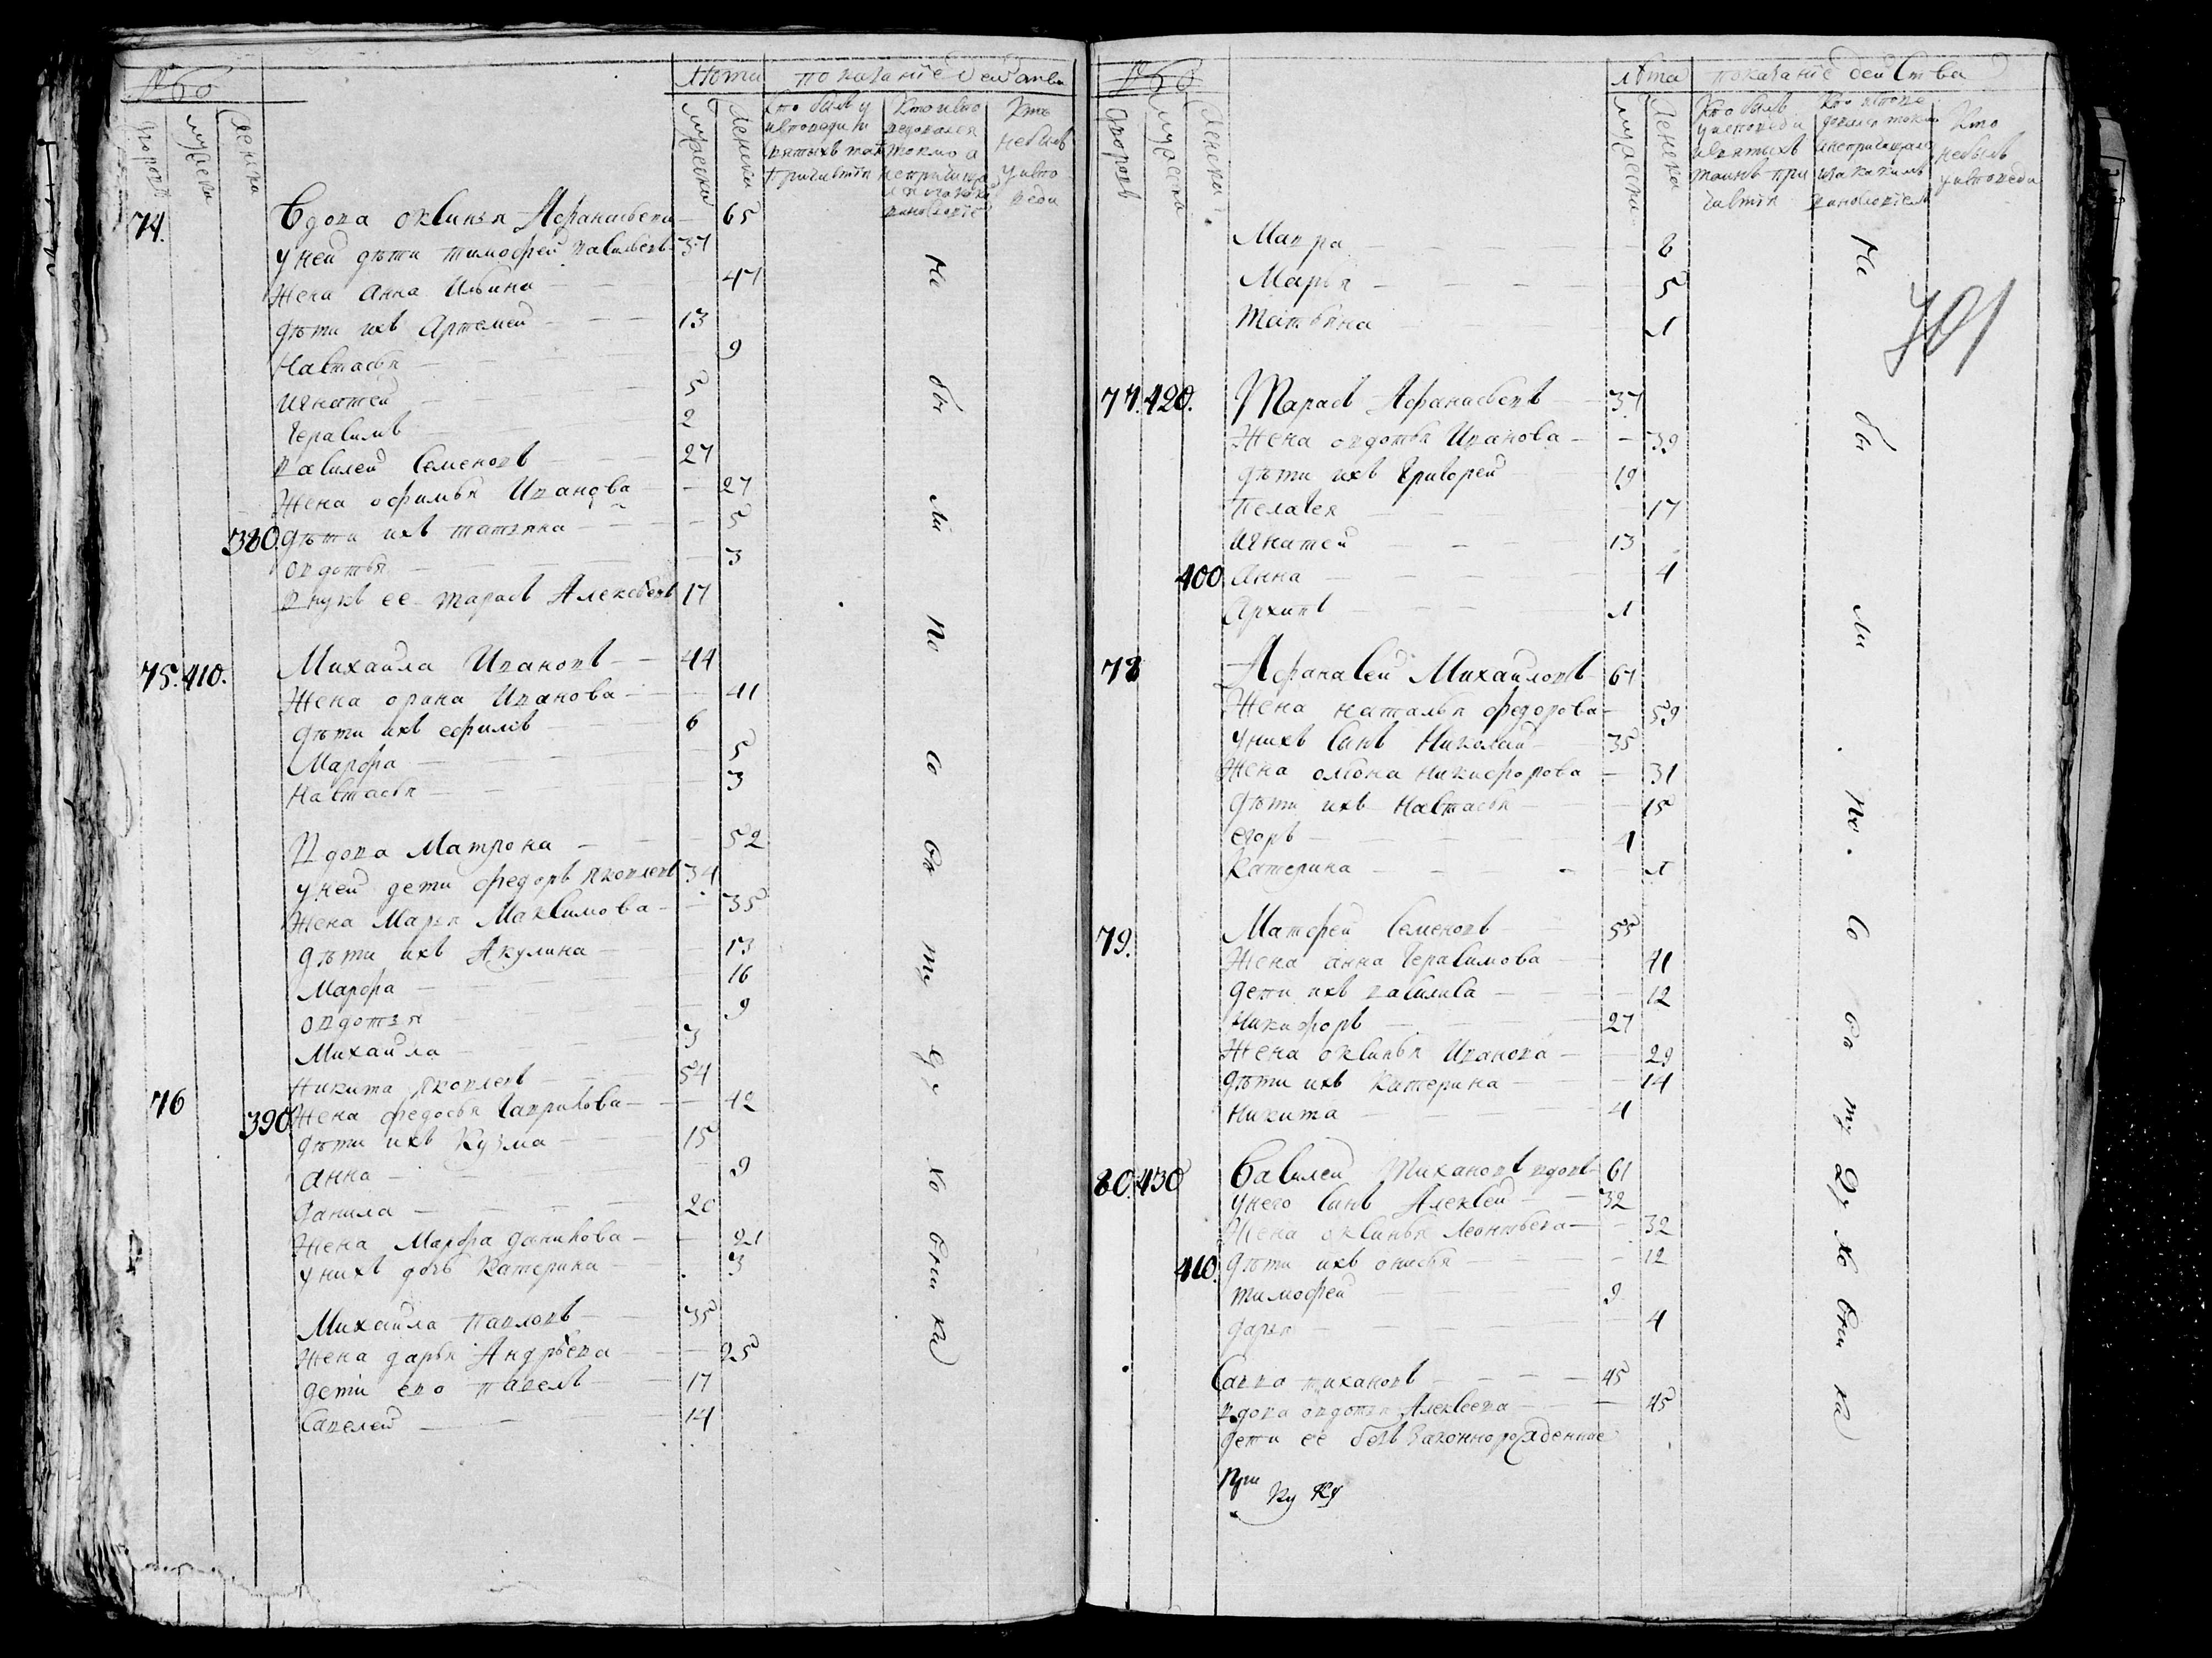 № бо
Лѣта показанїе деиства
дворовъ
мужеска
женска
мужеска
женска
кто былъ у исповеди и святыхъ таинъ причастїя
кто исповедовался токмо а не причащался и за какимъ винословїемъ
кто небылъ у исповеди
74. Вдова оксинья Афанасьева — 65
у ней дѣти тимофей васильевъ 37
жена Анна Ильина — 47
дѣти ихъ Артемей — 13
Настасья — 9
Игнатей — 5
Герасимъ — 2
василей Семеновъ — 27
жена офимья Иванова — 27
380. дѣти ихъ татьяна — 5
овдотья — 3
внукъ ее тарасъ Алексѣевъ 17
75. 410. Михаила Ивановъ — 44
жена орина Иванова — 41
дѣти ихъ ефимъ — 6
Марфа — 5
Настасья — 3
Вдова Матрона — 52
у ней дети федоръ яковлевъ 34
жена Марья Максимова — 35
дѣти ихъ Акулина — 13
Марфа — 16
овдотья — 9
Михаила — 3
76 Никита яковлевъ — 54
390. жена федосья Гаврилова — 42
дѣти ихъ Кузма — 15
Анна — 9
данила — 20
жена Марфа данилова — 21
у нихъ дочь Катерина — 3
Михаила павловъ — 35
жена дарья Андрѣева — 25
дети ево павелъ — 17
Савелей — 14
Не бы ли по со бст ду хо вни ка
№ бо
лѣта показанїе деиства
дворовъ
мужеска
женска
мужеска
женска
кто былъ у исповеди и святыхъ таинъ причастїя
кто исповедовался токмо а не причащался и за какимъ винословїем
кто небылъ у исповеди
401
Мавра — 8
Марья — 5
татьяна — 1
77. 420. Тарасъ Афанасьевъ — 37
жена овдотья Иванова — 39
дѣти ихъ Григорей — 19
пелагея — 17
Игнатей — 13
400. Анна — 4
Архипъ — 1
78 Афанасей Михаиловъ 67
жена наталья федорова — 59
у нихъ сынъ Николай — 35
жена олѣона никифорова — 31
дѣти ихъ Настасья — 15
егоръ — 4
Катерина — 1
79. Матфей Семеновъ — 55
жена анна Герасимова — 41
дети ихъ василиса — 12
никифоръ — 27
жена оксинья Иванова — 29
дѣти ихъ катерина — 14
Никита — 4
80. 430 Василей Тихановъ вдовъ 61
у него сынъ Алексей — 32
жена оксинья леонтьева — 32
410. дѣти ихъ онисья — 12
тимофей — 9
дарья — 4
Савва тихановъ — 45
вдова овдотья Алексеева — 45
дети ее безъ законнорожденные
Не бы ли по со бст ду хо вни ка